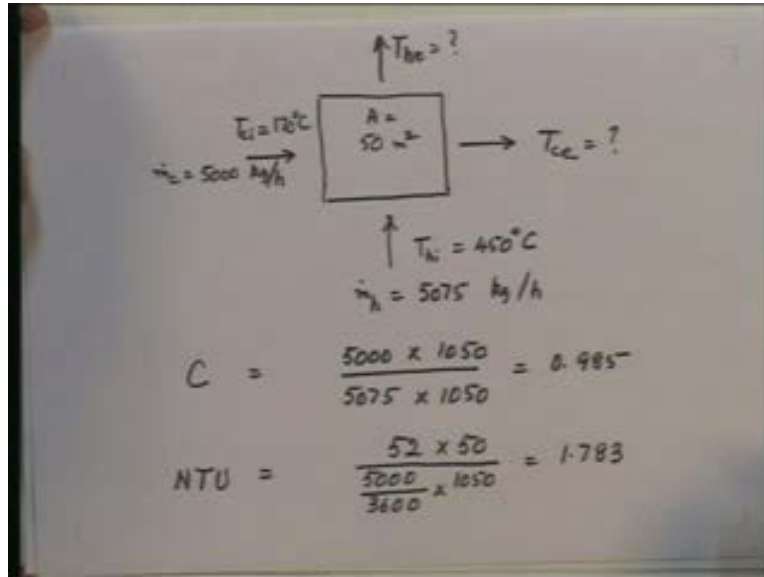 The = ?
Tci = 170°C
A =
50 m²
Tce = ?
ṁc = 5000 kg/h
Thi = 450°C
ṁh = 5075 kg/h
C = 5000 x 1050 / 5075 x 1050 = 0.985
NTU = 52 x 50 / 5000/3600 x 1050 = 1.783